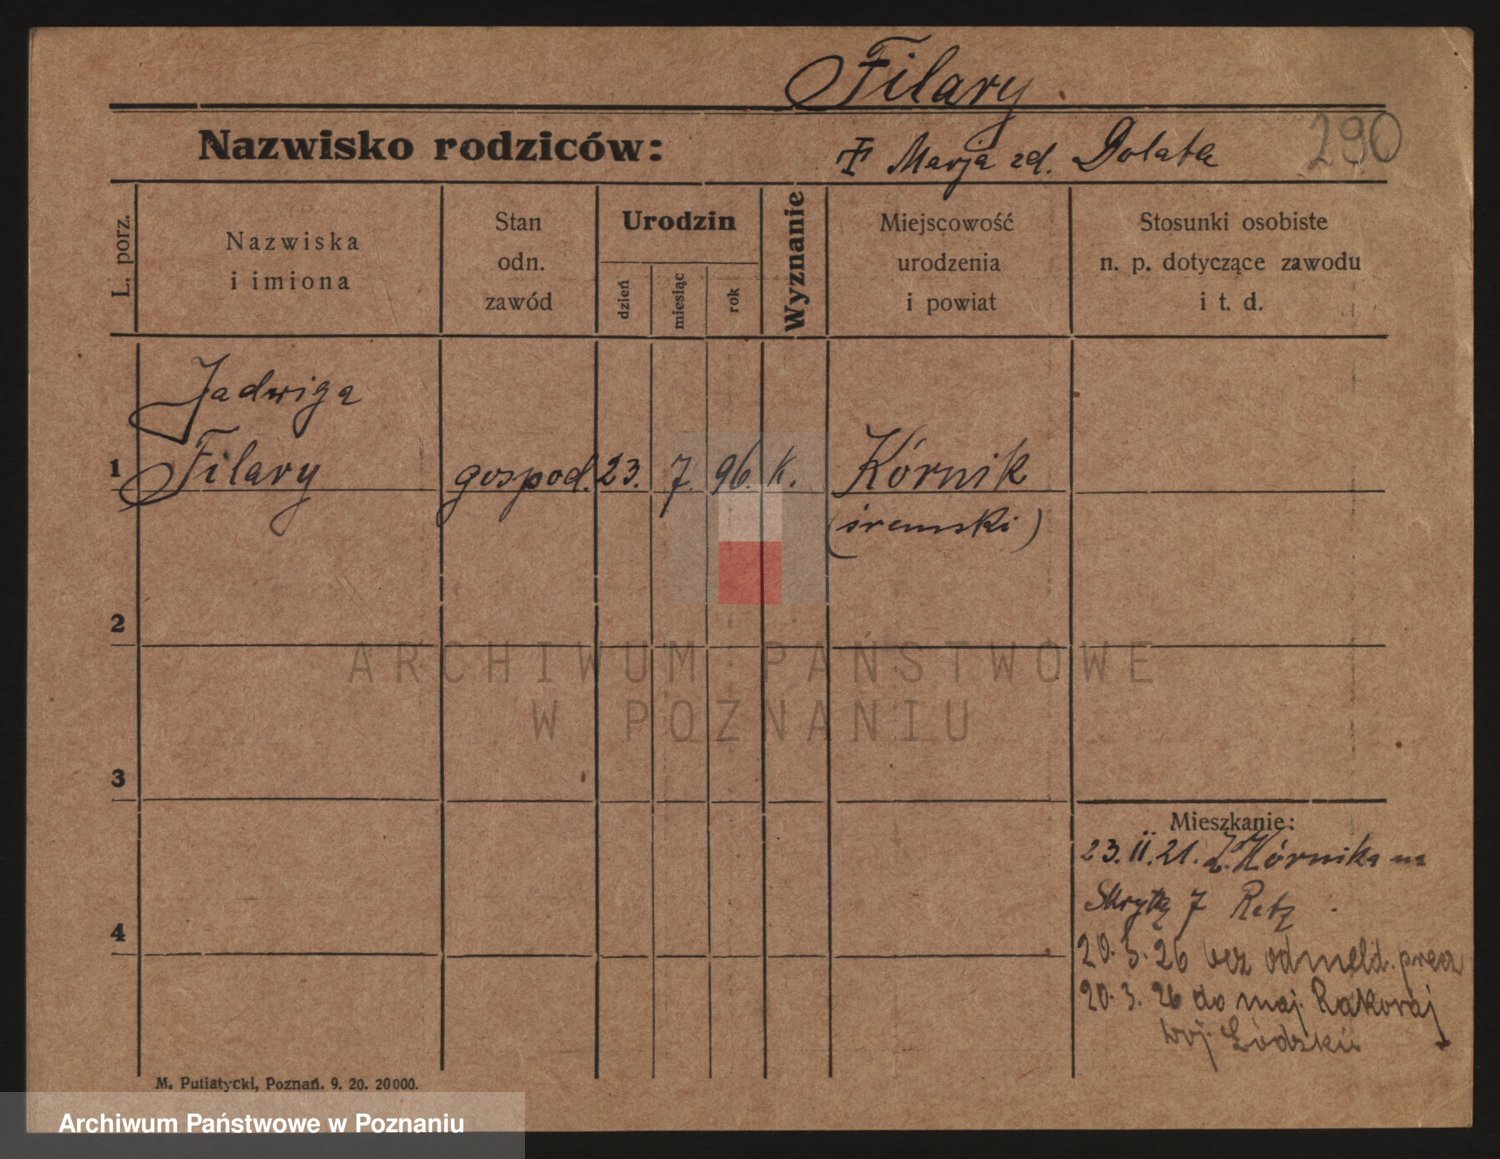 Filary
Nazwisko rodziców:
Marja zd. Dolata
290
L. porz.
Nazwiska
i imiona
Stan
odn.
zawód
Urodzin
dzień
miesiąc
rok
Wyznanie
Miejscowość
urodzenia
i powiat
Stosunki osobiste
n. p. dotyczące zawodu
i t. d.
Jadwiga
1 Filary gospod. 23. 7. 96. k. Kórnik
(śremski)
2
ARCHIWUM PAŃSTWOWE
W POZNANIU
3
Mieszkanie:
23. II. 21. Z. Kórnika na
7
4
20. 3. 26 bez odmeld. precz
20. 3. 26 do maj. Rakowaj
woj. Łódzkie
M. Putiatycki, Poznań. 9. 20. 20000.
Archiwum Państwowe w Poznaniu